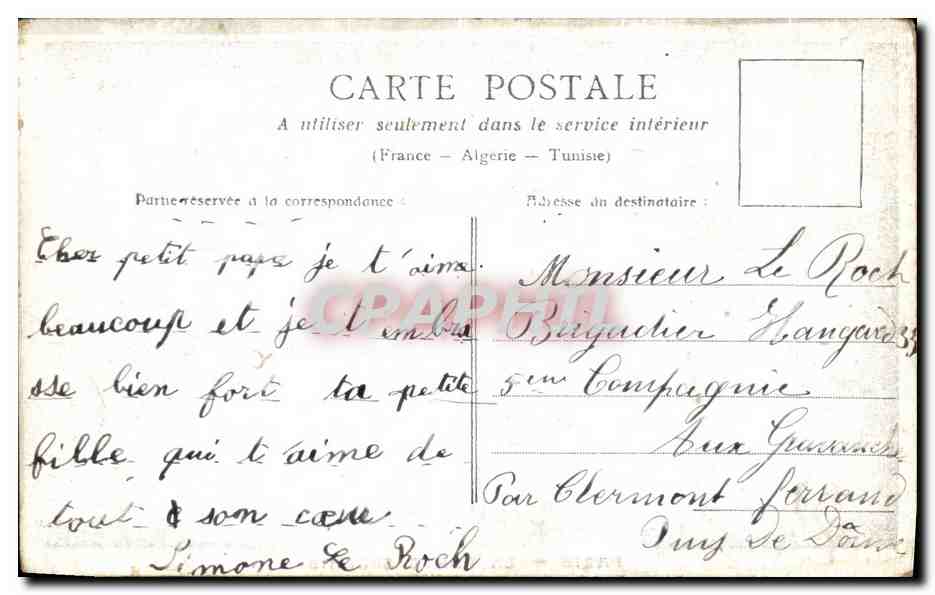 CARTE POSTALE
A utiliser seulement dans le service intérieur
(France — Algérie — Tunisie)
Partie réservée à la correspondance :
Cher petit papa je t'aime
beaucoup et je t embra
sse bien fort ta petite
fille qui t'aime de
tout son cœur
Simone Le Roch
Adresse du destinataire :
Monsieur Le Roch
Brigadier Hangard 33
5eme Compagnie
Aux
Par Clermont ferrand
Puy De Dôme
CPAPHIL